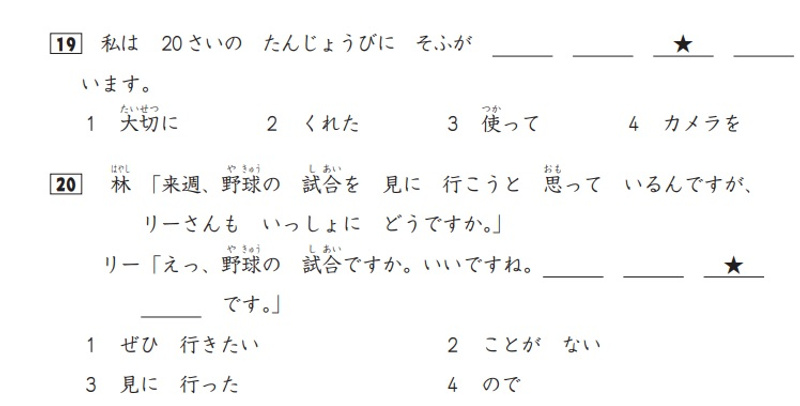 19 私は 20さいの たんじょうびに そふが ____ ____ __★__ ____
います。
1 大切に 2 くれた 3 使って 4 カメラを
20 林 「来週、野球の 試合を 見に 行こうと 思って いるんですが、
リーさんも いっしょに どうですか。」
リー「えっ、野球の 試合ですか。いいですね。____ ____ __★__
____ です。」
1 ぜひ 行きたい 2 ことが ない
3 見に 行った 4 ので